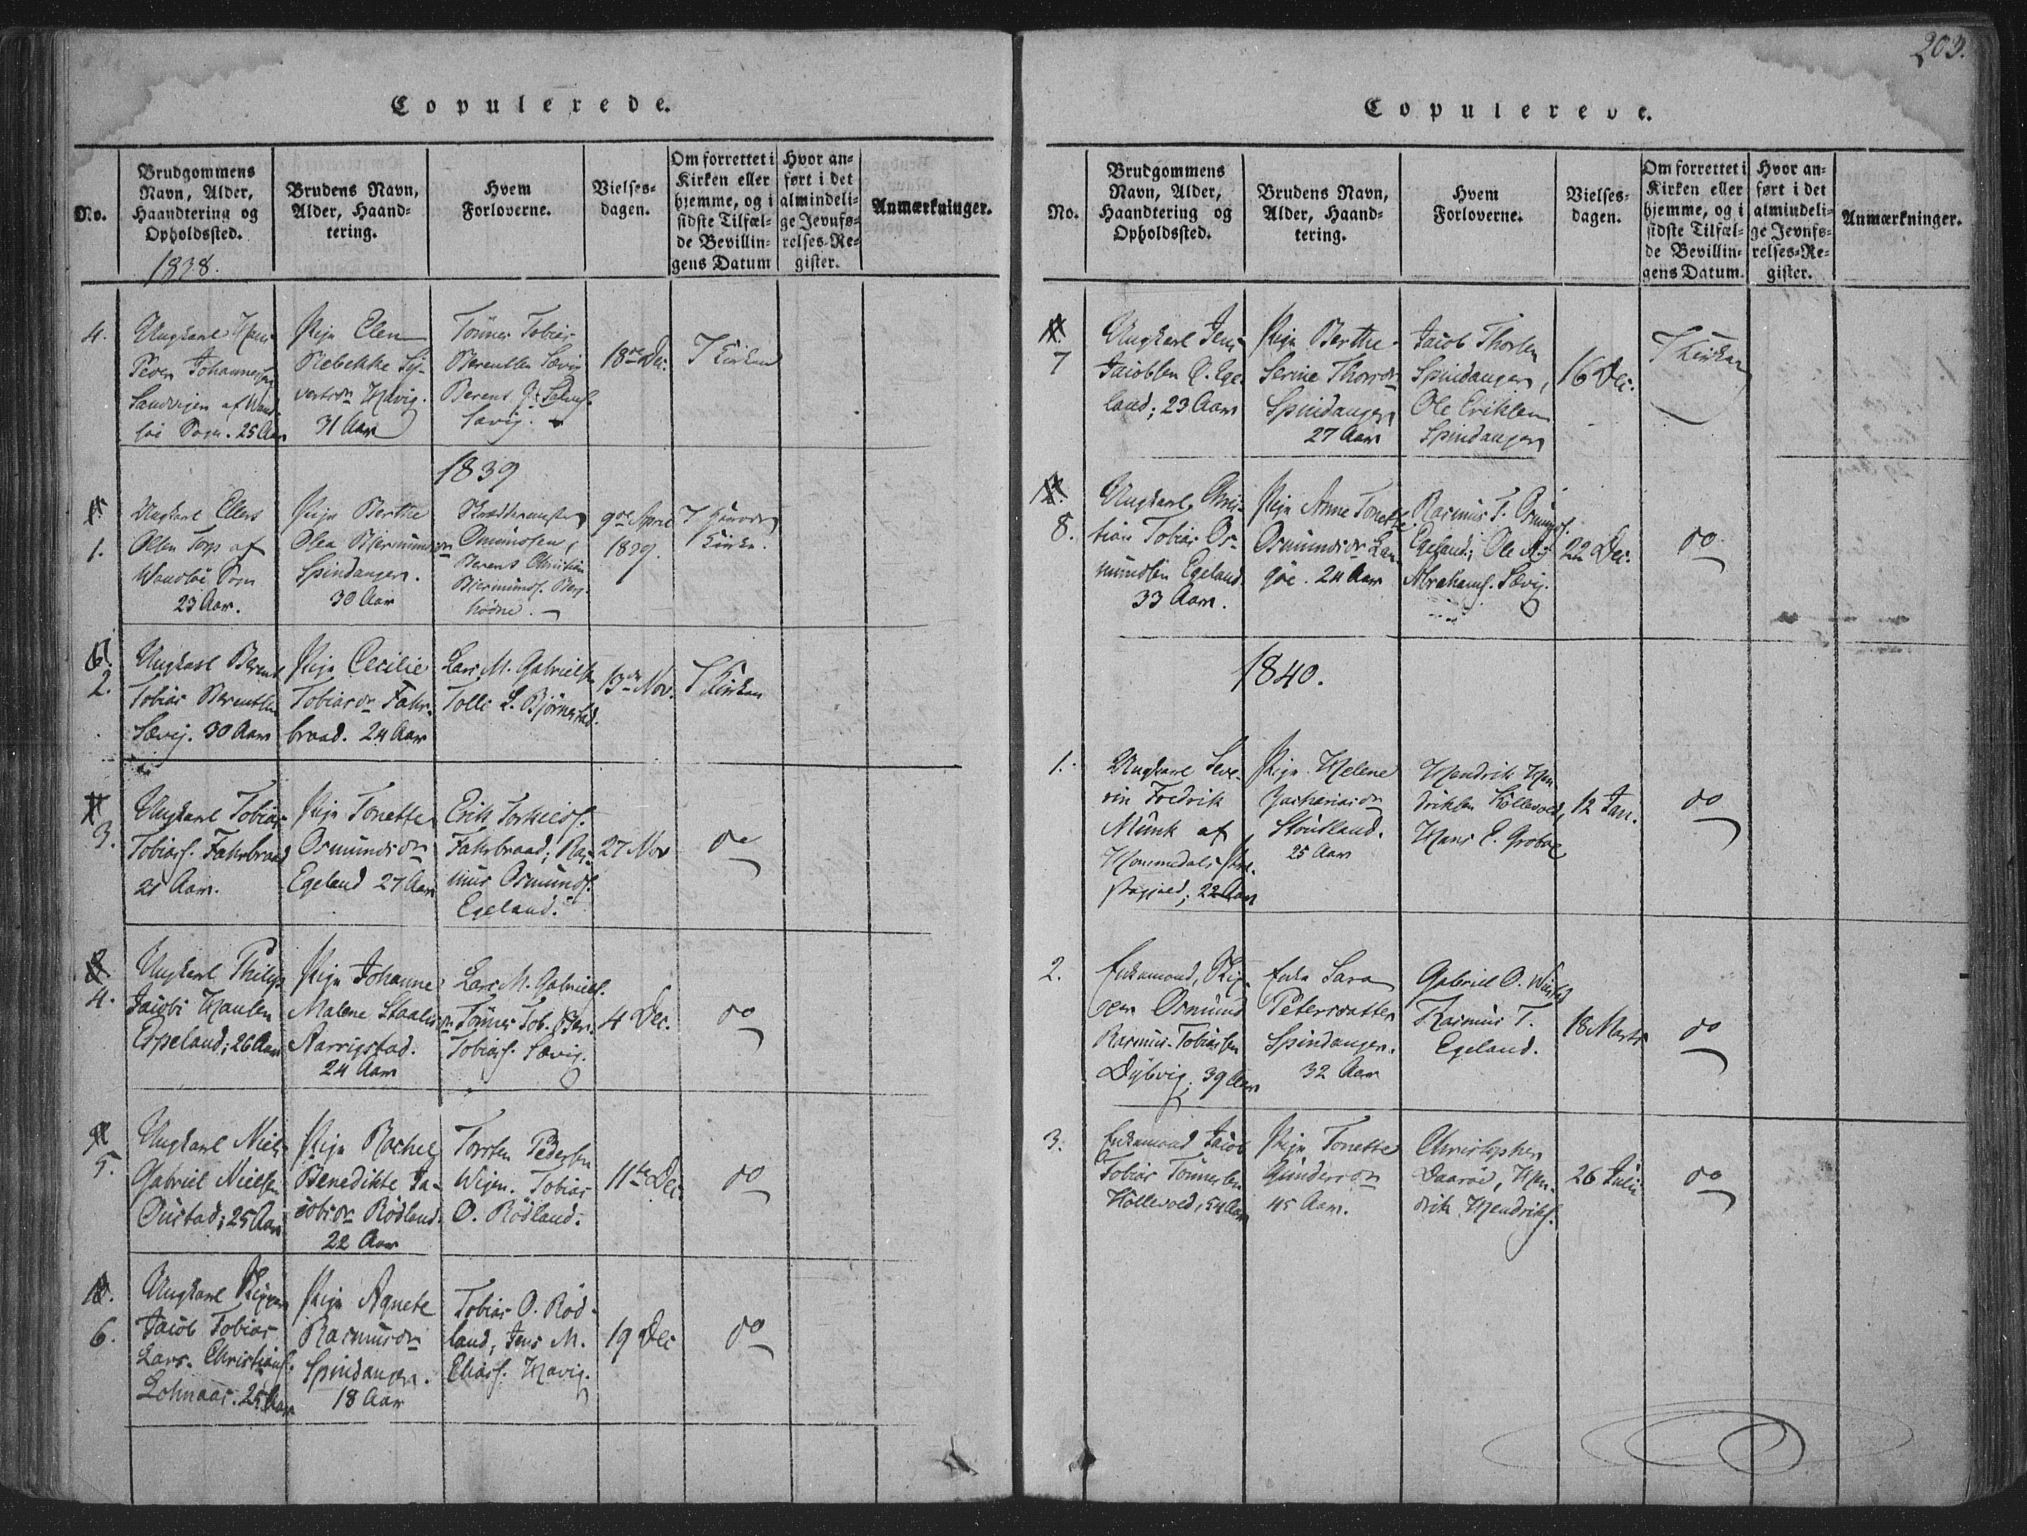 203.
Copulerede.
No.
Brudgommens Navn, Alder, Haandtering og Opholdssted.
Brudens Navn, Alder, Haandtering.
Hvem Forloverne.
Vielsesdagen.
Om forrettet i Kirken eller hjemme, og i sidste Tilfælde Bevillingens Datum
Hvor anført i det almindelige Jevnførelses-Register.
Anmærkninger.
1838.
4.
Ungkarl Hans
Peder Johannes
Sandvigen af
Sogn. 25 Aar
Pige Elen
Rebekke Sy-
vertsdr Havig.
31 Aar
Tønnes Tobias
Berentsen Sævig
Berent
Sævig.
18de Dec.
I Kirken
1839
1.
Ungkarl Ellert
Olsen Torp af
Wandsøe Sogn
23 Aar.
Pige Berthe
Olea Bjermundsdr
Spindangen.
30 Aar
Omundsen,
Berent Christian
Bjermunds.
9de April
1839.
I
Kirke.
6.
2.
Ungkarl Berent
Tobias Berentsen
Sævig. 30 Aar
Pige Cecilie
Tobiasdr Fahr-
braad. 24 Aar
Lars M. Gabrielsen
Tolle L. Bjørnestad.
13de Nov.
I Kirken
3.
Ungkarl Tobias
Tobias. Fahrbraad
21 Aar.
Pige Tonette
Osmundsdr
Egeland 27 Aar
Erik Torkields.
Fahrbraad; Ras-
mus Osmunds.
Egeland.
27 Nov
do
8.
4.
Ungkarl Philip
Jacobs Hansen
Espeland; 26 Aar
Pige Johanne
Malene Staalesdr
Narrigstad.
24 Aar
Lars M. Gabriels.
Tønnes Tob. Ber.
Tobias. Sævig.
4 Dec.
do
5.
Ungkarl Niels
Gabriel Nielsen
Oustad; 25 Aar
Pige Rachel
Benedikte Ja-
cobsdr Rødland.
22 Aar
Torsten Pedersen
Wigen. Tobias
O. Rødland.
11te Dec.
do
10.
6.
Ungkarl
Jacob Tobias
Lars. Christians.
Lohnaas. 25 Aar
Pige Agnete
Rasmusdr
Spindangen.
18 Aar
Tobias O. Rød-
land, Jens M.
Elias. Havig.
19 Dec
do
Copulerede.
No.
Brudgommens Navn, Alder, Haandtering og Opholdssted.
Brudens Navn, Alder, Haandtering.
Hvem Forloverne.
Vielsesdagen.
Om forrettet i Kirken eller hjemme, og i sidste Tilfælde Bevillingens Datum.
Hvor anført i det almindelige Jevnførelses-Register.
Anmærkninger.
7
Ungkarl Jens
Jacobsen O. Ege-
land; 23 Aar
Pige Berthe
Serine Thorsdr
Spindangen
27 Aar
Jacob Thorsen
Spindangen,
Ole Eriksen
Spindangen
16 Dec.
I Kirken
8.
Ungkarl Chris-
tian Tobias Os-
mundsen Egeland
33 Aar.
Pige Anne Tonette
Osmundsdr Lan-
göe. 24 Aar
Rasmus T. Osmunds.
Egeland; Ole
Abrahams. Sævig.
22 Dec.
do
1840.
1.
Ungkarl Seve-
rin Fredrik
Munk af
Hommedals Præ-
stegjeld; 22 Aar
Pige Helene
Zachariasdr
Stousland.
25 Aar
Hendrik Hen-
driksen Höllevold,
Hans E. Grobøe
12 Jan.
do
2.
Enkemand,
Osmund
Rasmus Tobiassen
Dybvig; 39 Aar
Enke Sara
Petersdatter
Spindangen.
32 Aar
Gabriel O.
Rasmus T.
Egeland.
18 Marts
do
3.
Enkemand Jacob
Tobias Tønnesen
Höllevold, 54 Aar
Pige Tonette
Gundersdr
45 Aar.
Christopher
Daarøe, Hen-
drik Hendriks.
26 Julii
do